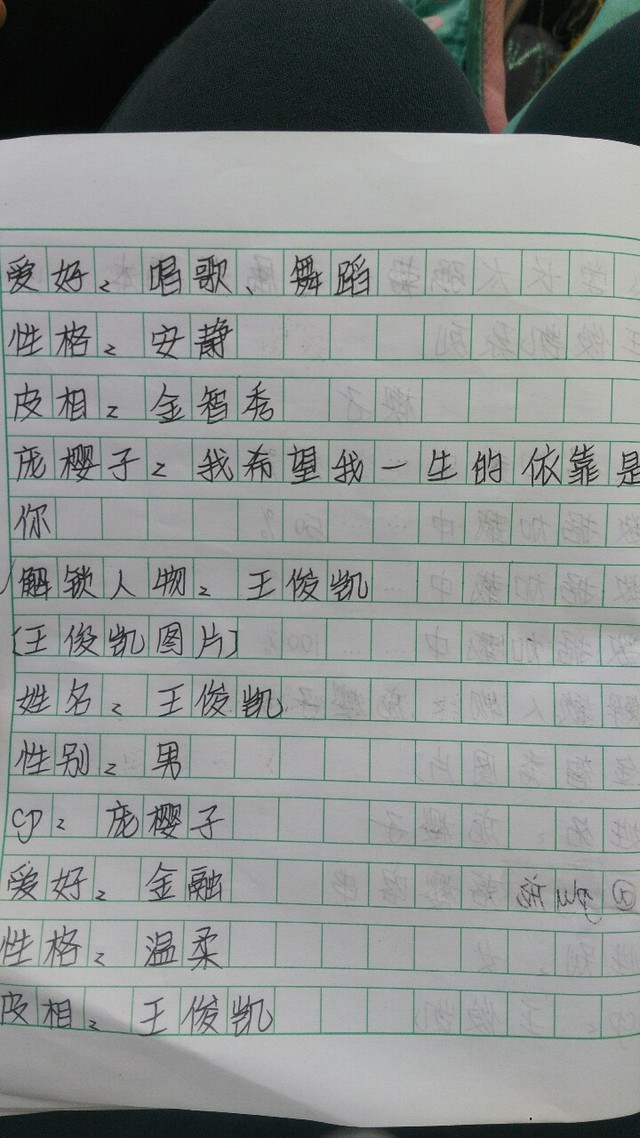 爱好：唱歌、舞蹈
性格：安静
皮相：金智秀
庞樱子：我希望我一生的依靠是
你
解锁人物：王俊凯
[王俊凯图片]
姓名：王俊凯
性别：男
cp：庞樱子
爱好：金融
性格：温柔
皮相：王俊凯